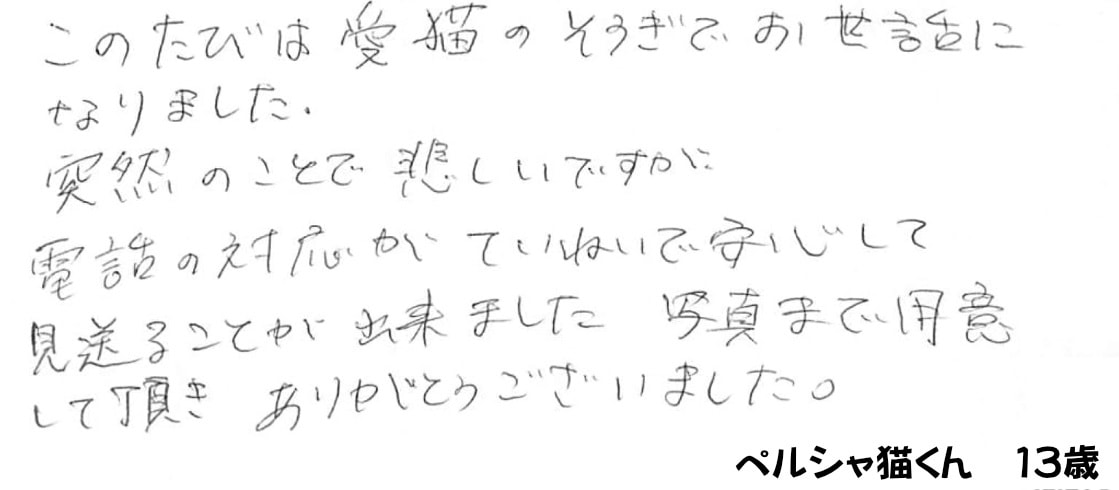 このたびは愛猫のそうぎでお世話に
なりました.
突然のことで悲しいですが
電話の対応がていねいで安心して
見送ることが出来ました 写真まで用意
して頂き ありがとうございました。
ペルシャ猫くん 13歳